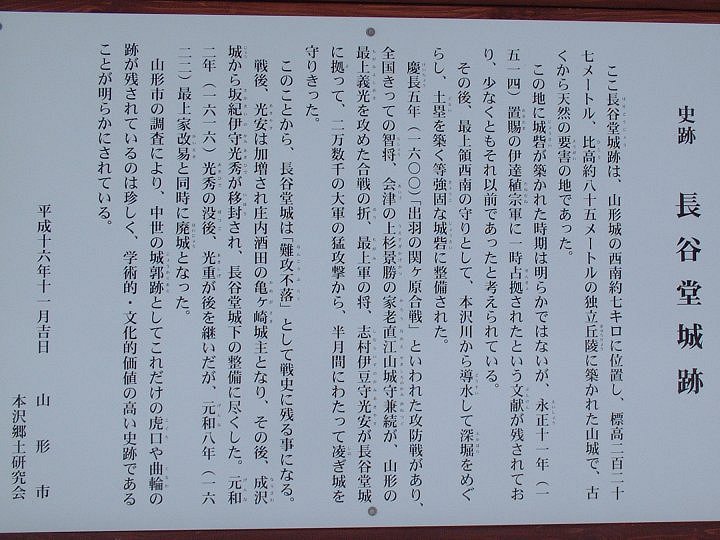 史跡　長谷堂城跡
ここ長谷堂城跡は、山形城の西南約七キロに位置し、標高二百二十
七メートル、比高約八十五メートルの独立丘陵に築かれた山城で、古
くから天然の要害の地であった。
この地に城砦が築かれた時期は明らかではないが、永正十一年（一
五一四）置賜の伊達稙宗軍に一時占拠されたという文献が残されてお
り、少なくともそれ以前であったと考えられている。
その後、最上領西南の守りとして、本沢川から導水して深堀をめぐ
らし、土塁を築く等強固な城砦に整備された。
慶長五年（一六〇〇）「出羽の関ヶ原合戦」といわれた攻防戦があり、
全国きっての智将、会津の上杉景勝の家老直江山城守兼続が、山形の
最上義光を攻めた合戦の折、最上軍の将、志村伊豆守光安が長谷堂城
に拠って、二万数千の大軍の猛攻撃から、半月間にわたって凌ぎ城を
守りきった。
このことから、長谷堂城は「難攻不落」として戦史に残る事になる。
戦後、光安は加増され庄内酒田の亀ヶ崎城主となり、その後、成沢
城から坂紀伊守光秀が移封され、長谷堂城下の整備に尽くした。元和
二年（一六一六）光秀の没後、光重が後を継いだが、元和八年（一六
二二）最上家改易と同時に廃城となった。
山形市の調査により、中世の城郭跡としてこれだけの虎口や曲輪の
跡が残されているのは珍しく、学術的・文化的価値の高い史跡である
ことが明らかにされている。
平成十六年十一月吉日
山形市
本沢郷土研究会